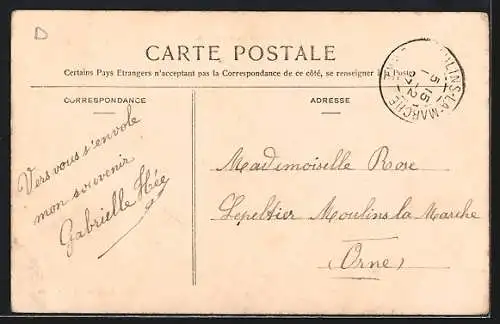 D
CARTE POSTALE
Certains Pays Etrangers n'acceptant pas la Correspondance de ce côté, se renseigner à la Poste
MOULINS-LA-MARCHE
ORNE
CORRESPONDANCE
ADRESSE
Vers vous s'envole
mon souvenir
Gabrielle Hée
Mademoiselle Rose
Lepeltier Moulins la Marche
(Orne)